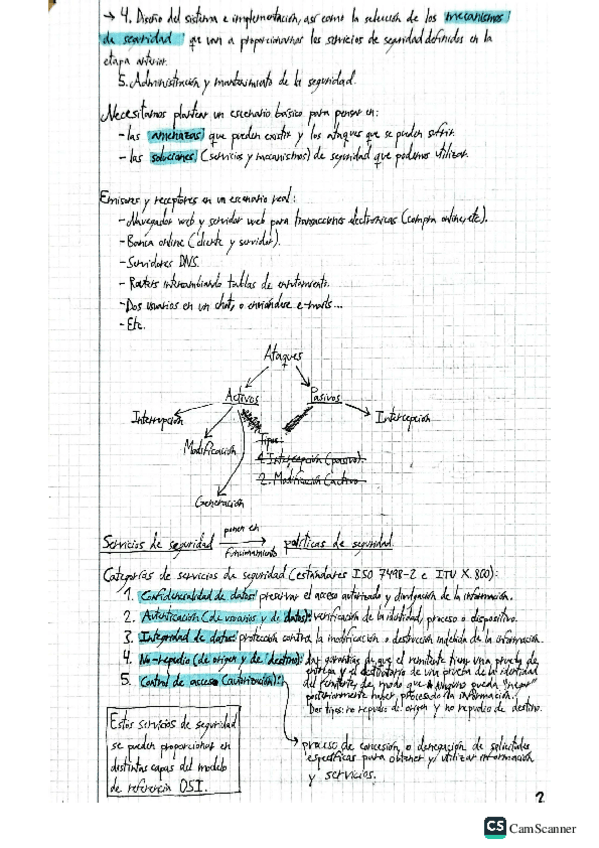 → 4. Diseño del sistema e implementación, así como la selección de los mecanismos
de seguridad que van a proporcionarnos los servicios de seguridad definidos en la
etapa anterior.
5. Administración y mantenimiento de la seguridad.
Necesitamos plantear un escenario básico para pensar en:
- las amenazas que pueden existir y los ataques que se pueden sufrir.
- las soluciones (servicios y mecanismos) de seguridad que podemos utilizar.
Emisores y receptores en un escenario real:
- Navegador web y servidor web para transacciones electrónicas (compra online, etc).
- Banca online (cliente y servidor).
- Servidores DNS.
- Routers intercambiando tablas de enrutamiento.
- Dos usuarios en un chat, o enviándose e-mails...
- Etc.
Ataques
Activos Pasivos
Interrupción Intercepción
Modificación
Tipos:
1. Intercepción (pasivo).
2. Modificación (activo
Generación
Servicios de seguridad poner en funcionamiento políticas de seguridad
Categorías de servicios de seguridad (estándares ISO 7498-2 e ITU X.800):
1. Confidencialidad de datos: preservar el acceso autorizado y divulgación de la información.
2. Autenticación (de usuarios y de datos): verificación de la identidad, proceso o dispositivo.
3. Integridad de datos: protección contra la modificación o destrucción indebida de la información.
4. No-repudio (de origen y de destino): dar garantías de que el remitente tiene una prueba de
entrega y el destinatario de una prueba de la identidad
del remitente, de modo que ninguno pueda "negar"
posteriormente haber procesado la información.
Dos tipos: no repudio de origen y no repudio de destino.
5. Control de acceso (autorización):
proceso de concesión, o denegación de solicitudes
específicas para obtener y utilizar información
y servicios.
Estos servicios de seguridad
se pueden proporcionar en
distintas capas del modelo
de referencia OSI.
2
CS CamScanner